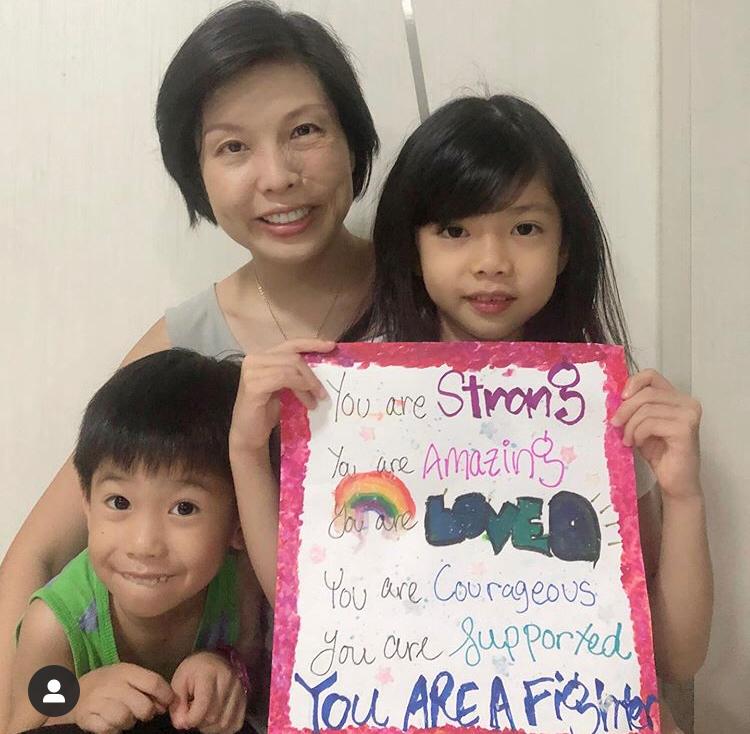 You are Strong
You are Amazing
You are LOVED
You are Courageous
You are Supported
YOU ARE A Fighter